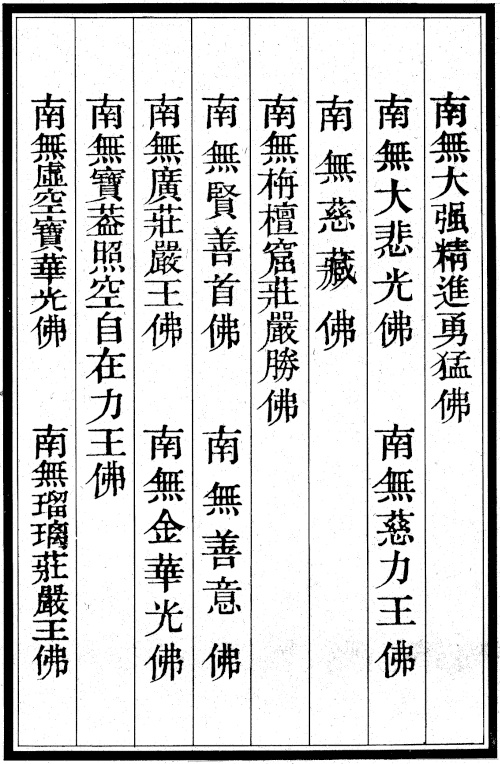 南無大强精進勇猛佛
南無大悲光佛　南無慈力王佛
南無慈藏佛
南無栴檀窟莊嚴勝佛
南無賢善首佛　南無善意佛
南無廣莊嚴王佛　南無金華光佛
南無寶葢照空自在力王佛
南無虛空寶華光佛　南無瑠璃莊嚴王佛